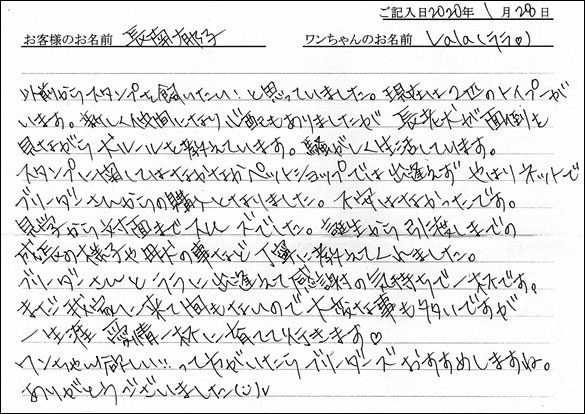 ご記入日2020年 1月28日
お客様のお名前 長南郁子 ワンちゃんのお名前 Lala(ララ♡)
以前からスタンプーを飼いたい と思っていました。現在は2匹のトイプーが
います。新しく仲間になり心配もありましたが 長老犬が面倒を
見ながら ルールを教えています。騒がしく生活しています。
スタンプーに関してはなかなかペットショップでは出逢えず やはりネットで
ブリーダーさんからの購入となりました。不安はなかったです。
見学から対面までスムーズでした。誕生から引渡しまでの
成長の様子や母犬の事など 丁寧に教えてくれました。
ブリーダーさんと ララに出逢えて感謝の気持ちで一杯です。
まだ我家に来て間もないので 大変な事も多いですが
一生涯 愛情一杯に育てて行きます♡
ワンちゃん欲しい!! って方がいたらブリーダーズ おすすめしますね。
ありがとうございました(☺)v